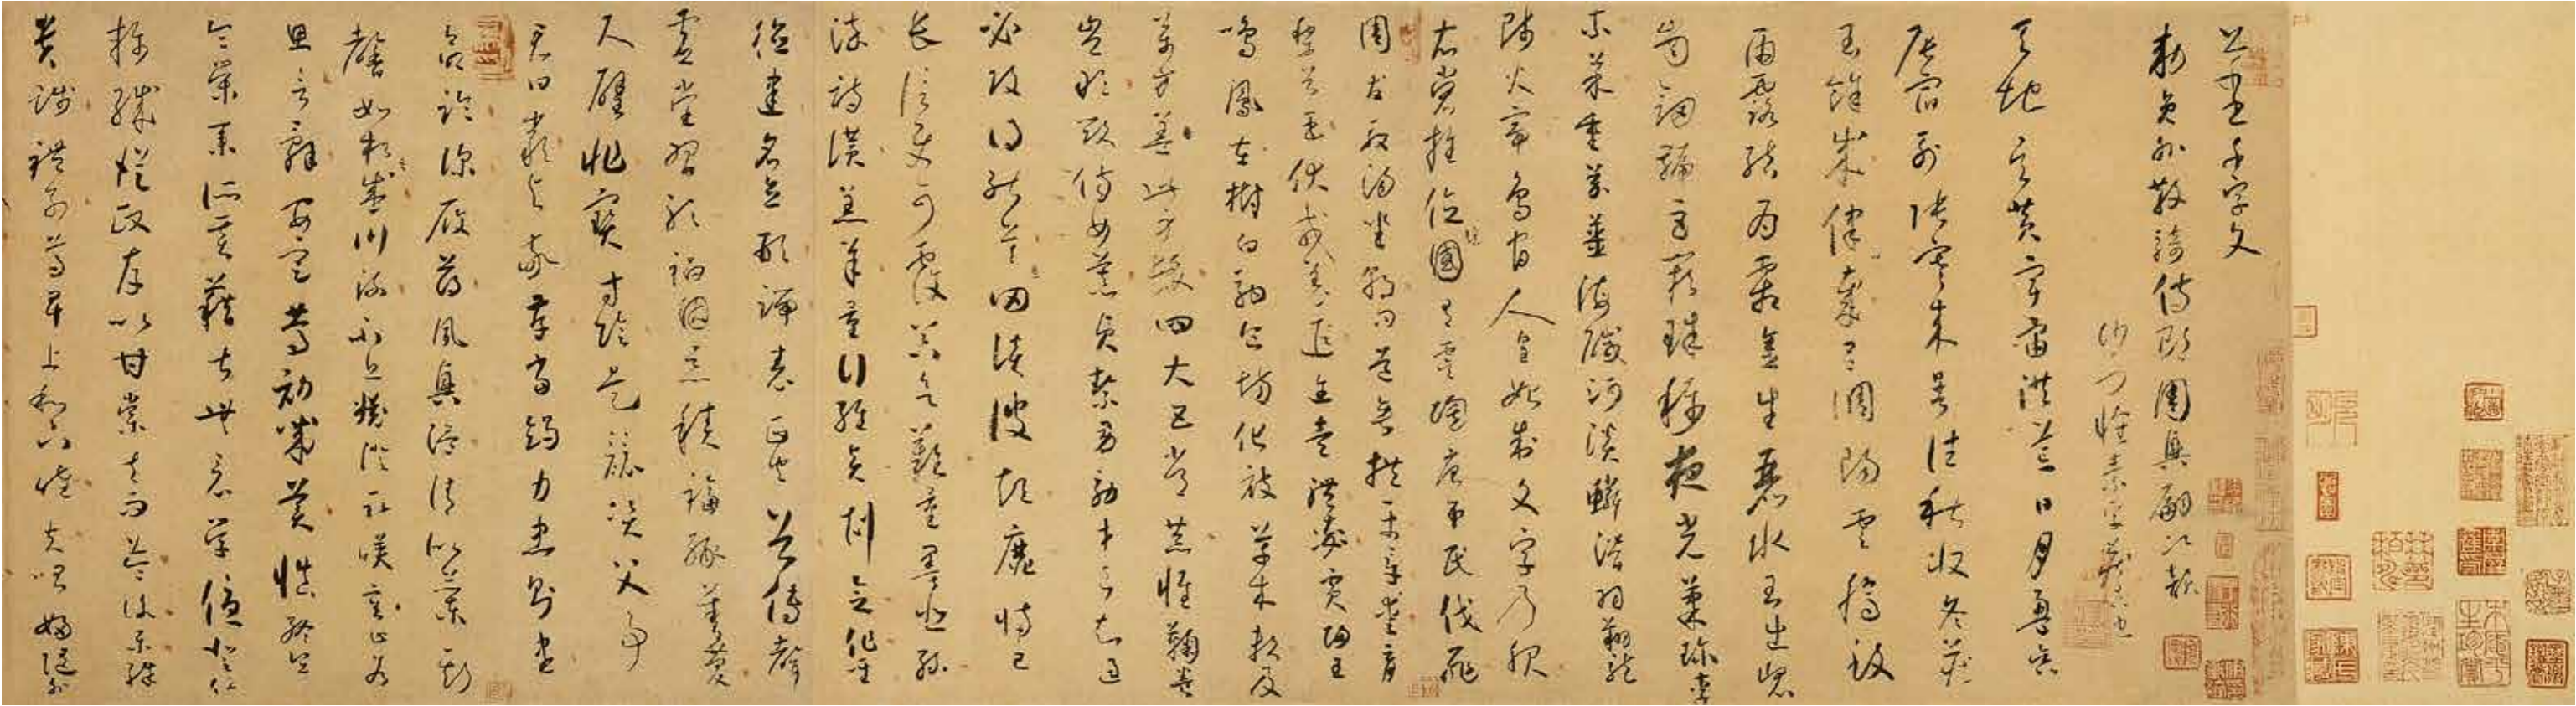 草書千字文
敕員外散騎侍郎周興嗣次韻
沙門懷素字藏真也
天地玄黃宇宙洪荒日月盈昃
辰宿列張寒來暑往秋收冬藏
閏餘成歲律呂調陽雲騰致
雨露結為霜金生麗水玉出崑
崗劍號巨闕珠稱夜光菓珍李
柰菜重芥薑海鹹河淡鱗潛羽翔龍
師火帝鳥官人皇始制文字乃服
衣裳推位讓國有虞陶唐弔民伐罪
周發殷湯坐朝問道垂拱平章愛育
黎首臣伏戎羌遐迩壹體率賓歸王
鳴鳳在樹白駒食場化被草木賴及
萬方蓋此身髮四大五常恭惟鞠養
豈敢毀傷女慕貞絜男效才良知過
必改得能莫忘罔談彼短靡恃己
長信使可覆器欲難量墨悲絲
染詩讚羔羊景行維賢剋念作聖
德建名立形端表正空谷傳聲
虛堂習聽禍因惡積福緣善慶
尺璧非寶寸陰是競資父事
君曰嚴與敬孝當竭力忠則盡
命臨深履薄夙興溫凊似蘭斯
馨如松之盛川流不息淵澄取暎容止若
思言辭安定篤初誠美慎終宜
令榮業所基籍甚無竟學優登仕
攝職從政存以甘棠去而益詠樂殊
貴賤禮別尊卑上和下睦夫唱婦隨外